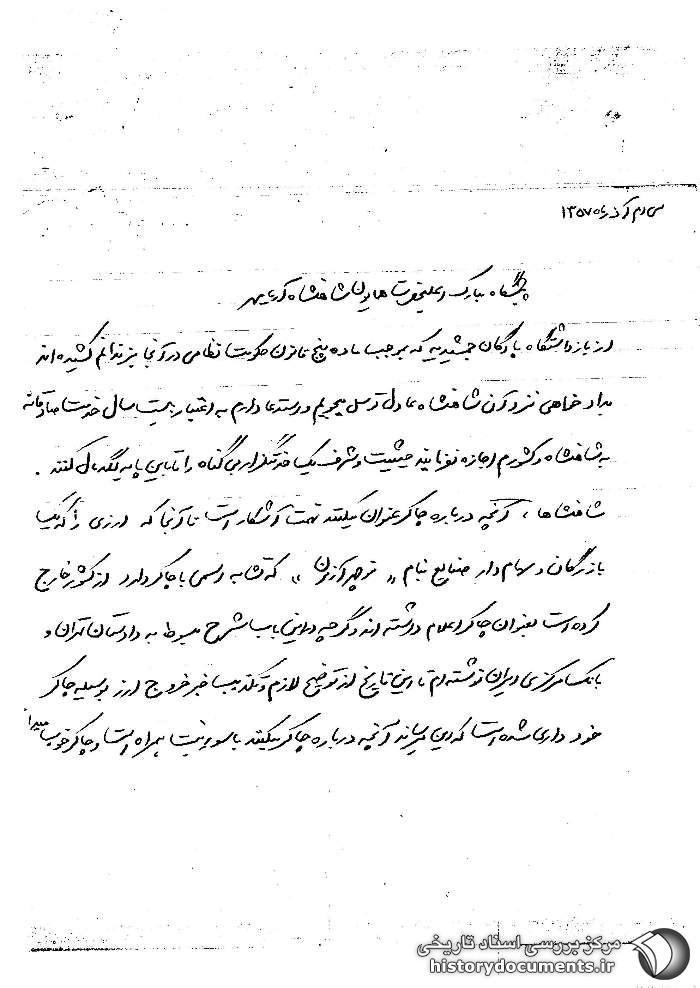 سی‌ام آذرماه ۱۳۵۷
پیشگاه مبارک اعلیحضرت همایون شاهنشاه آریامهر
از بازداشتگاه پادگان جمشیدیه که بموجب ماده پنج قانون حکومت نظامی در آنجا بزندانم کشیده‌اند
بدادخواهی نزد آن شاهنشاه عادل توسل میجویم و استدعا دارم به اعتبار بیست سال خدمت صادقانه
به شاهنشاه و کشورم اجازه نفرمایند حیثیت و شرف یک خدمتگزار بی گناه را تا باین پایه لگدمال کنند .
شاهنشاها ، آنچه درباره چاکر عنوان میکنند تهمت آشکار است تا آنجا که ارزی را که یک
بازرگان و سهام‌دار صنایع بنام « منوچهر آزمون » که تشابه اسمی با چاکر دارد از کشور خارج
کرده است بعنوان چاکر اعلام داشته‌اند و گرچه در این باب شرح مبسوط به دادستان تهران و
بانک مرکزی ایران نوشته‌ام تا این تاریخ از توضیح لازم و تکذیب خبر خروج ارز بوسیله چاکر
خودداری شده است که این میرساند آنچه درباره چاکر میکنند با سوء نیت همراه است و چاکر خوب میداند
مرکز بررسی اسناد تاریخی
historydocuments.ir